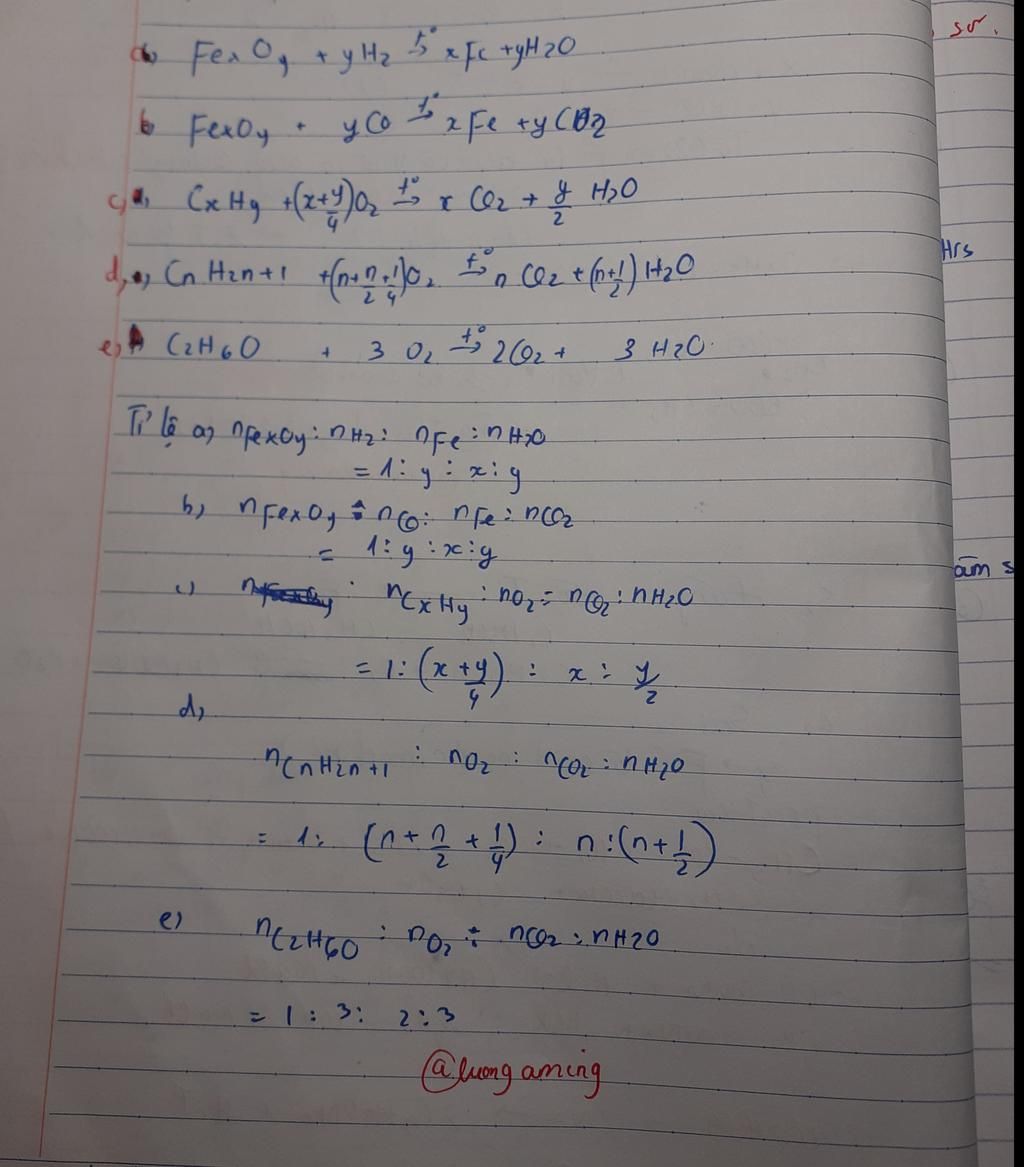 sơ.
a, FexOy + yH2 t°→ xFe + yH2O
b FexOy + yCO t°→ xFe + yCO2
c, CxHy + (x+y/4)O2 t°→ x CO2 + y/2 H2O
Hrs
d, CnH2n+1 + (n+n/2+1/4)O2 t°→ n CO2 + (n+1/2) H2O
e, C2H6O + 3 O2 t°→ 2CO2 + 3 H2O.
Tỉ lệ a, nFexOy : nH2 : nFe : nH2O
= 1 : y : x : y
b, nFexOy : nCO : nFe : nCO2
= 1 : y : x : y
c) : nCxHy : nO2 = nCO2 : nH2O
= 1 : (x + y/4) : x : y/2
d,
nCnH2n+1 : nO2 : nCO2 : nH2O
= 1 : (n + n/2 + 1/4) : n : (n + 1/2)
e) nC2H6O : nO2 : nCO2 : nH2O
= 1 : 3 : 2 : 3
@luongaming